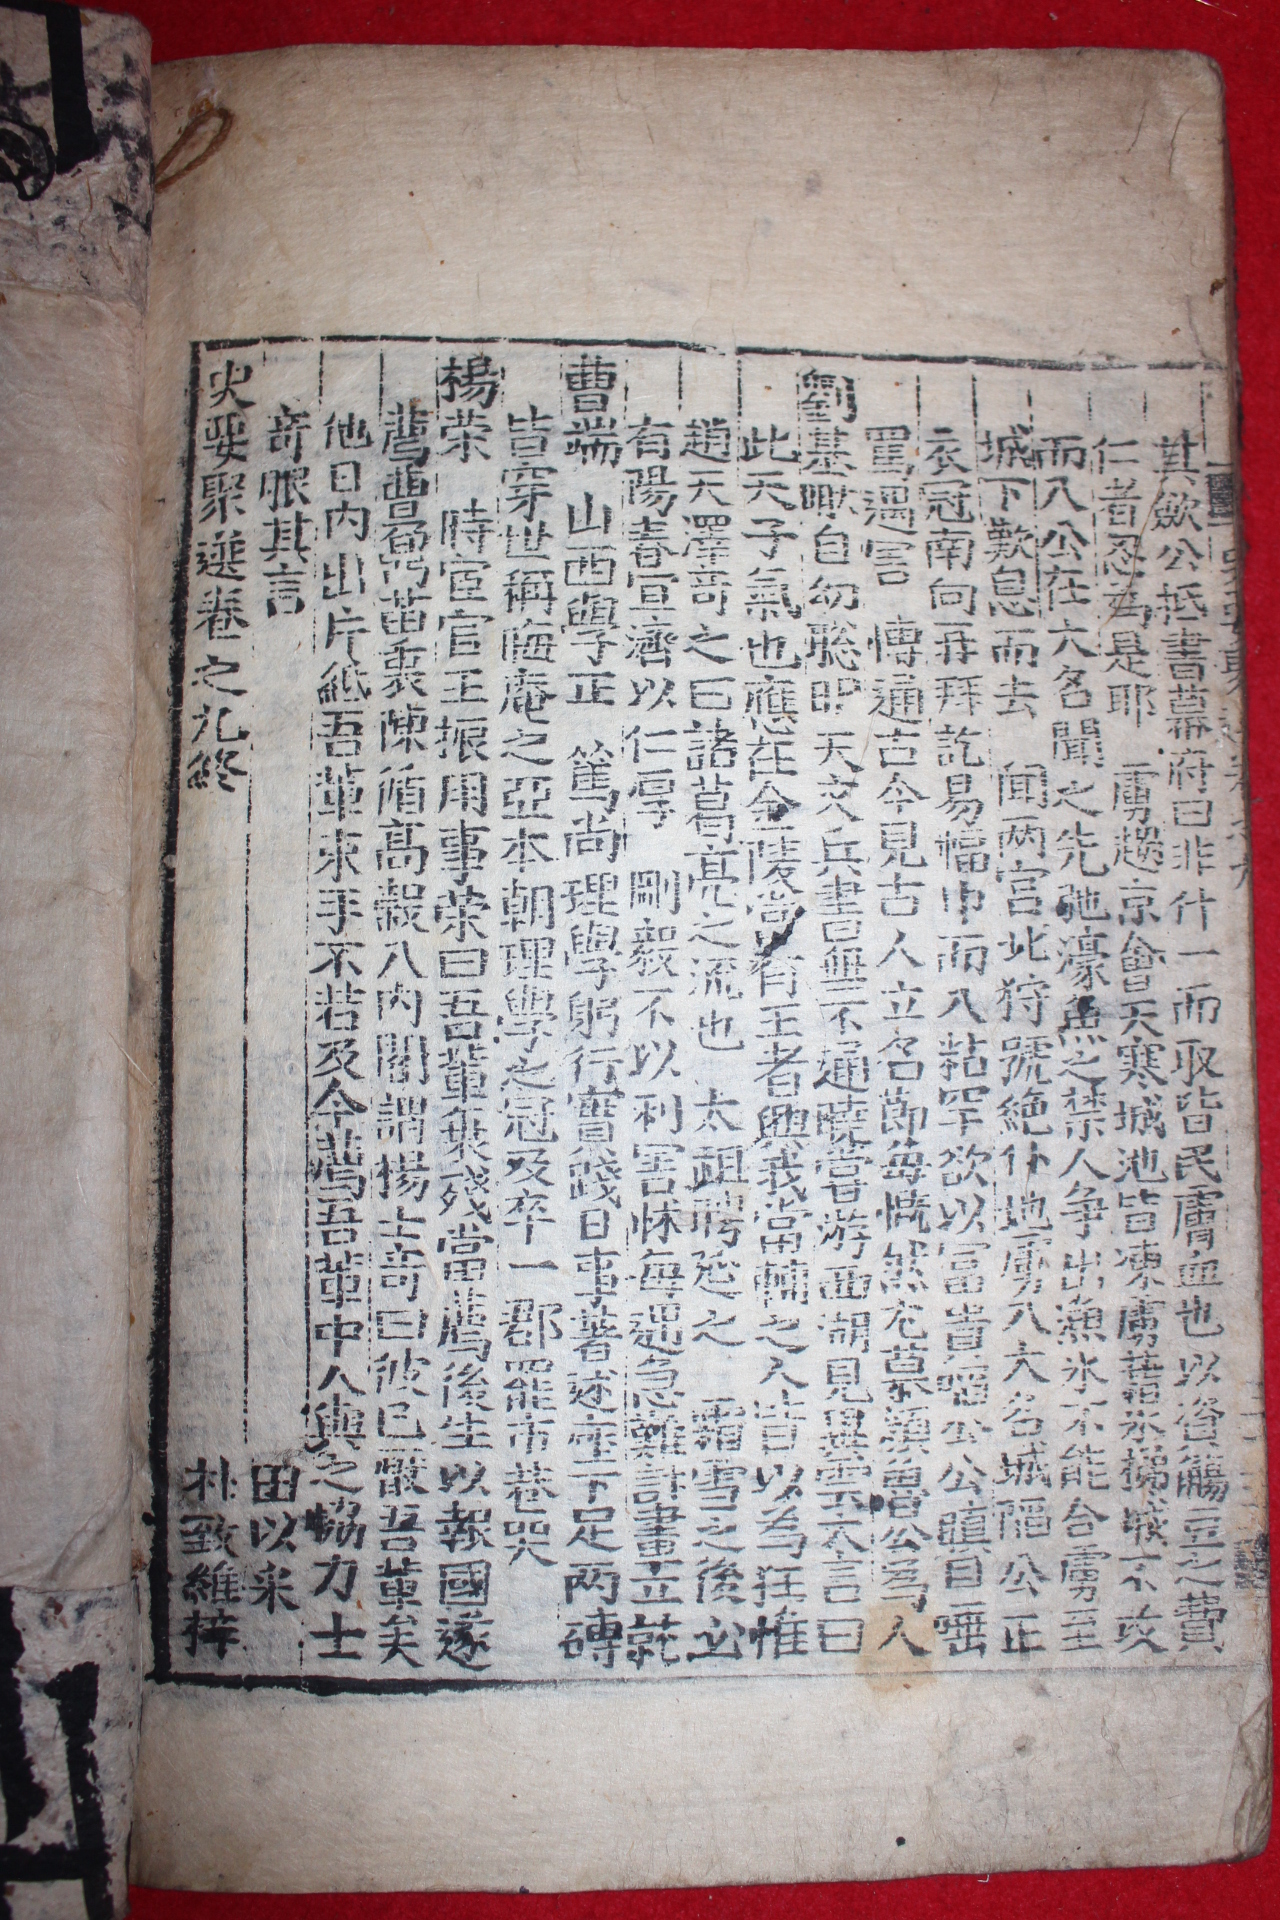 其歛公抵書幕府曰非什一而取皆民膚血也以資觴豆之費
仁者忍為是耶 虜趍京會天寒城池皆凍虜藉氷梯城不攻
而入公在大名聞之先弛濠魚之禁人争出漁氷不能合虜至
城下歎息而去 聞两宮北狩號絶仆地虜入大名城陥公正
衣冠南向再拜訖易幅巾而入粘罕欲以冨貴啗公公瞋目唾
罵遇害 愽通古今見古人立名節每慨然尤慕顔魯公為人
劉基 自幼聡明天文兵書無不通曉甞游西湖見異雲大言曰
此天子氣也應在金陵當有王者興我當輔之人皆以為狂惟
趙天澤竒之曰諸葛亮之流也 太祖聘延之 霜雪之後必
有陽春宣濟以仁厚 剛毅不以利害怵每遇急難計畫立就
曹端 山西學正 篤尚理學躬行實踐日事著述座下足两磚
皆穿世稱晦庵之亞本朝理學之冠及卒一郡罷市巷哭
楊荣 時宦官王振用事荣曰吾軰衰残當薦後生以報國遂
薦曹鼐苗衷陳循高糓入内閣謂楊士竒曰彼已厭吾軰矣
他日内出片紙吾軰束手不若及今薦吾軰中人與之恊力士
竒服其言
田以采
史要聚選卷之九終 朴致維梓